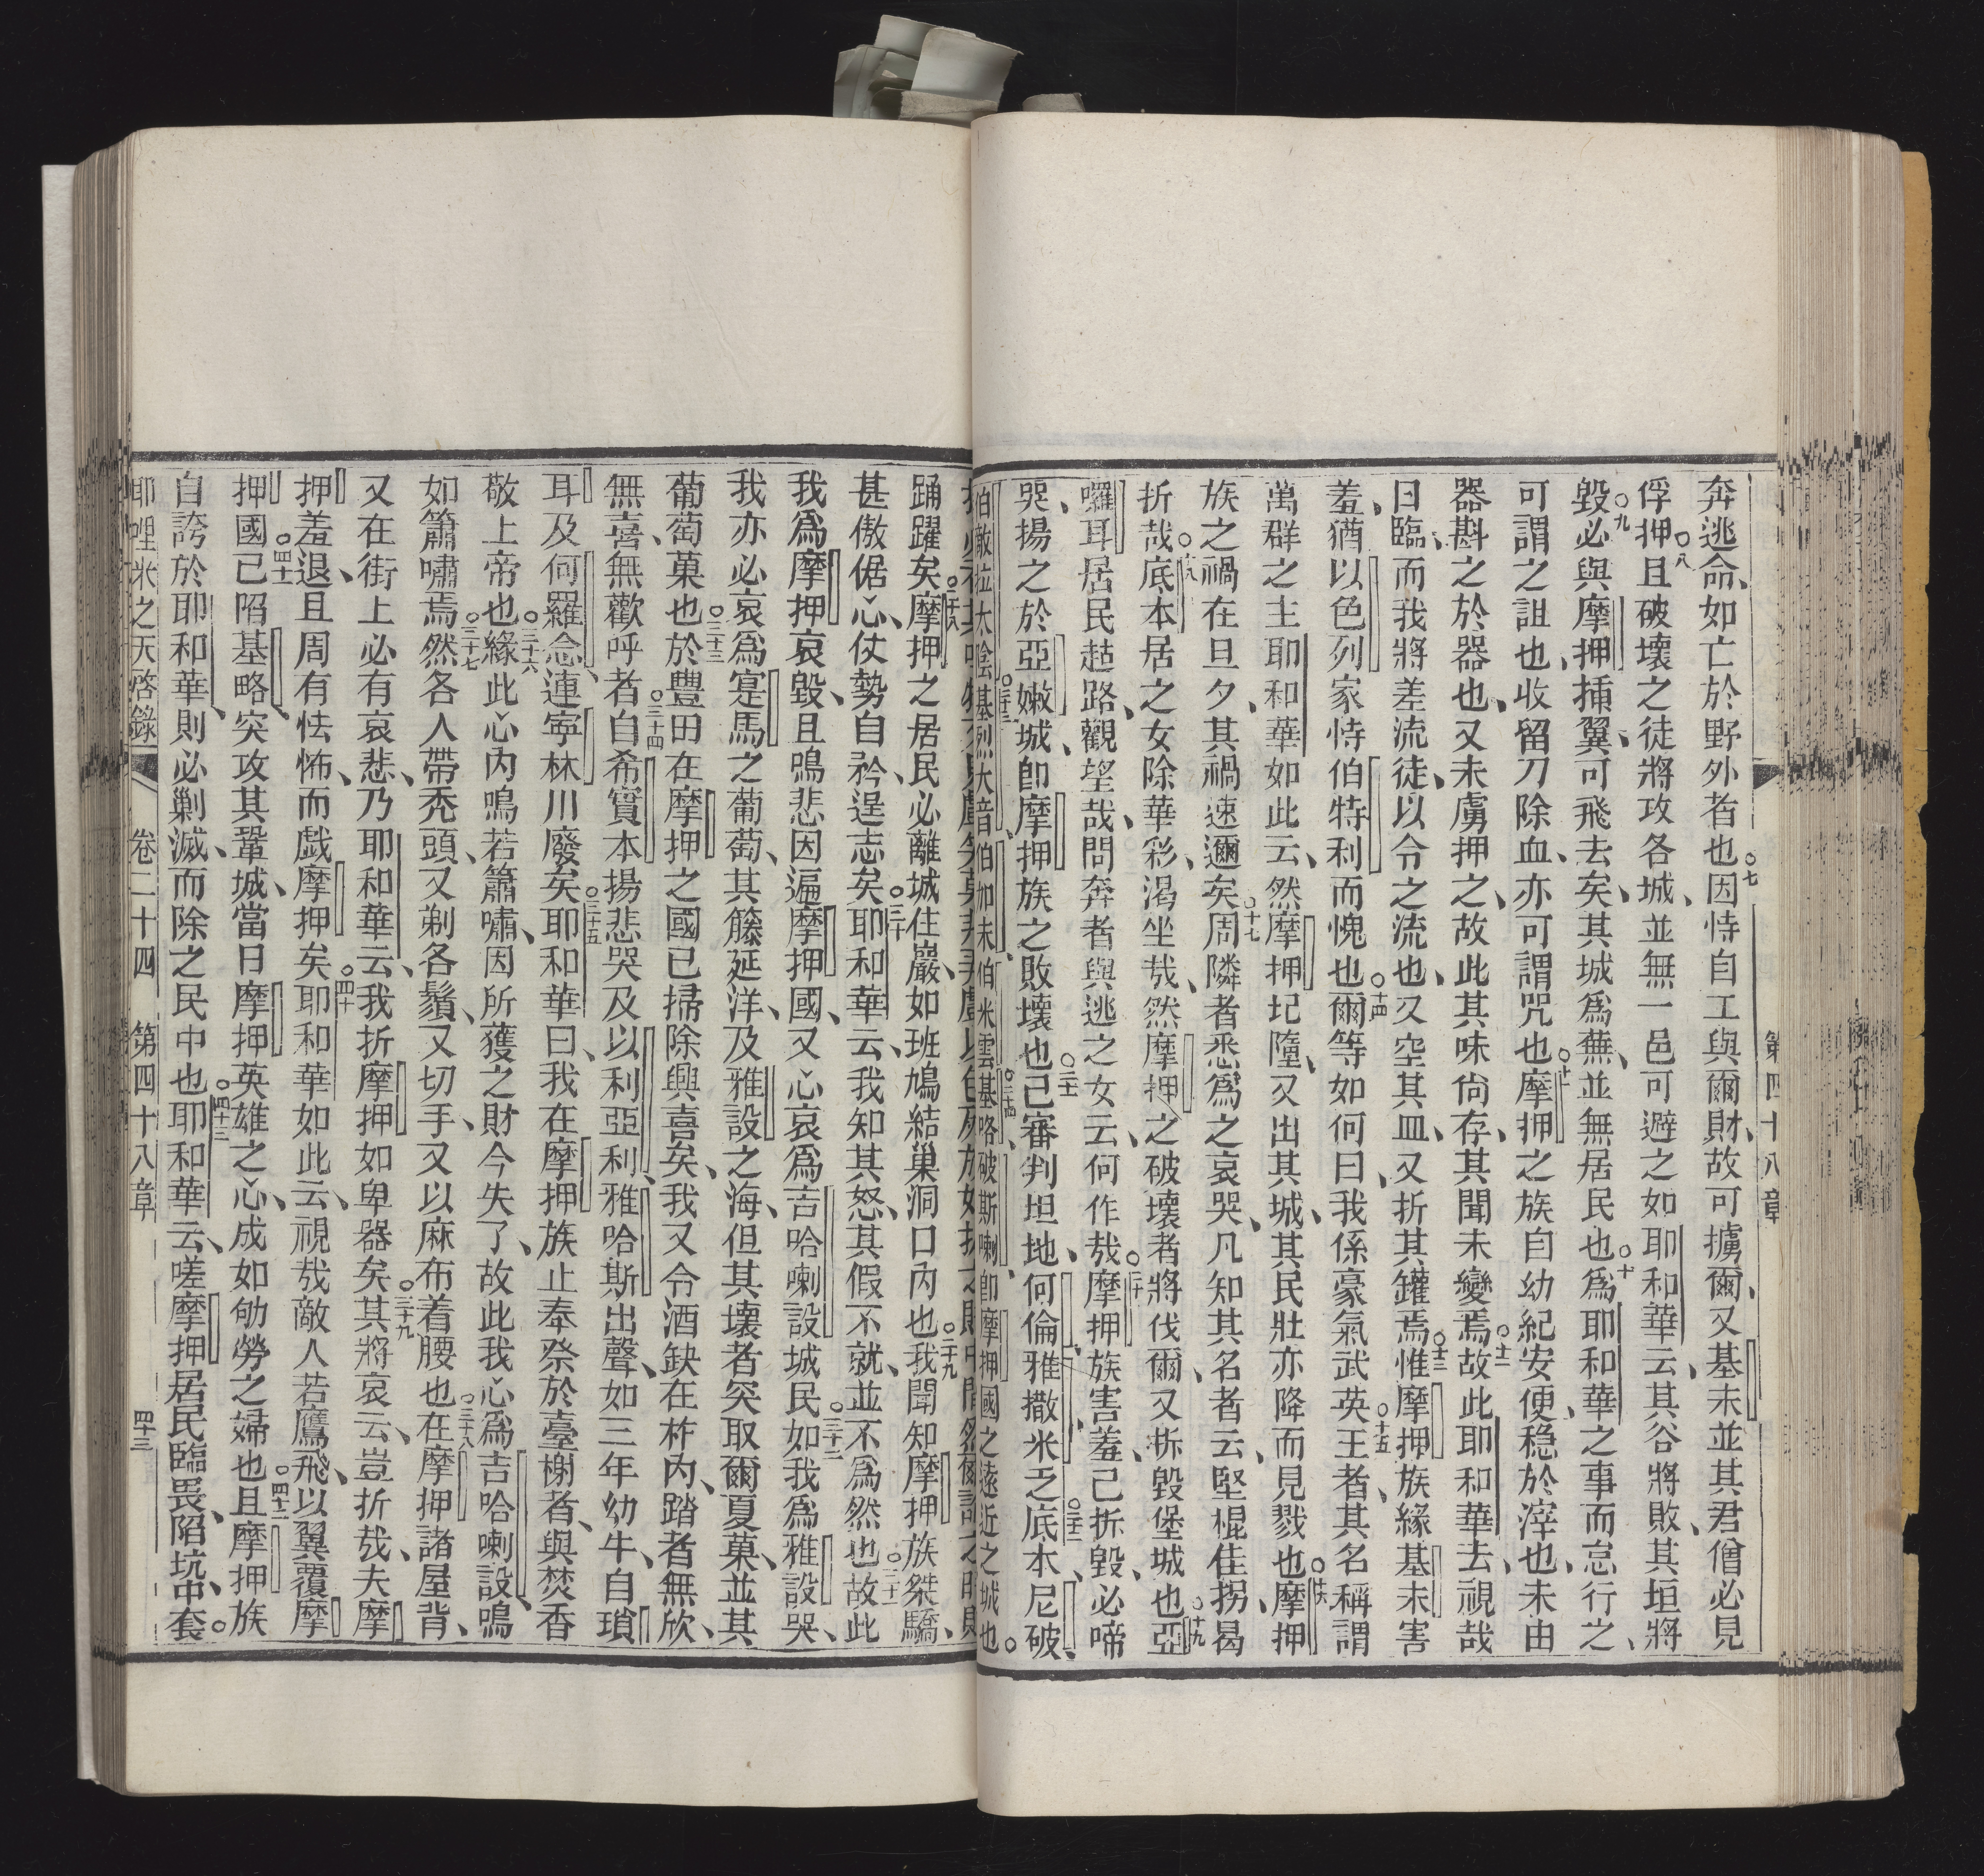 第四十八章
奔逃命、如亡於野外者也○七因恃自工與爾財、故可擄爾、又基未並其君僧必見
俘押○八且破壞之徒將攻各城、並無一邑可避之如耶和華云、其谷將敗、其垣將
毀○九必與摩押插翼、可飛去矣、其城爲蕪、並無居民也○十爲耶和華之事而怠行之、
可謂之詛也、收留刀除血、亦可謂咒也○十一摩押之族自幼紀安便、稳於滓也、未由
器斟之於器也、又未虜押之、故此其味尙存、其聞未變焉○十二故此耶和華去、視哉
日臨、而我將差流徒、以令之流也、又空其皿、又折其罐焉○十三惟摩押族緣基未害
羞、猶以色列家恃伯特利而愧也○十四爾等如何曰、我係豪氣武英○十五王者、其名稱謂
萬群之主耶和華如此云、然摩押圮墮、又出其城、其民壯亦降而見戮也○十六摩押
族之禍在旦夕、其禍速邇矣○十七周隣者悉爲之哀哭、凡知其名者云、堅棍佳拐曷
折哉○十八底本居之女除華彩、渴坐哉、然摩押之破壞者將伐爾、又拆毀堡城也○十九亞
囉耳居民趍路、觀望哉、問奔者與逃之女云、何作哉○二十摩押族害羞、己折毀、必啼
哭、揚之於亞嫩城、卽摩押族之敗壞也○二十一己審判坦地、何倫雅撒米乏○二十二底本、尼破、
伯敵拉大陰○二十三基烈大音、伯加未、伯米雲○二十四基略、破斯喇、卽摩押國之遠近之城也。
踊躍矣○二十八摩押之居民必離城住巖、如班鳩結巢洞口內也○二十九我聞知摩押族桀驕、
甚傲倨心、仗勢自矜、逞志矣○三十耶和華云、我知其怒、其假不就、並不爲然也○三十一故此
我爲摩押哀毀、且鳴悲因遍摩押國、又心哀爲吉哈喇設城民○三十二如我爲雅設哭、
我亦必哀爲寔馬之葡萄、其籐延洋、及雅設之海、但其壞者突取爾夏菓、並其
葡萄菓也○三十三於豐田在摩押之國已掃除興喜矣、我又令酒缺在柞內、踏者無欣、
無喜、無歡呼者○三十四自希實本揚悲哭及以利亞利、雅哈斯出聲、如三年幼牛、自瑣
耳及何羅念、連寧林川廢矣○三十五耶和華曰、我在摩押族止奉祭於臺榭者、與焚香
敬上帝也○三十六緣此心內鳴若簫嘯、因所獲之財今失了、故此我心爲吉哈喇設、鳴
如簫嘯焉○三十七然各人帶禿頭、又剃各鬚、又切手、又以麻布着腰也○三十八在摩押諸屋背、
又在街上必有哀悲、乃耶和華云、我折摩押如卑器矣○三十九其將哀云、豈折哉、夫摩
押羞退、且周有怯怖、而戱摩押矣○四十耶和華如此云、視哉敵人若鷹飛、以翼覆摩
押國○四十一己陷基略、突攻其鞏城、當日摩押英雄之心、成如劬勞之婦也○四十二且摩押族
自誇於耶和華、則必剿滅、而除之民中也○四十三耶和華云、嗟摩押居民臨畏、陷坑中套。
耶哩米之天啓錄　卷二十四　第四十八章　四十三